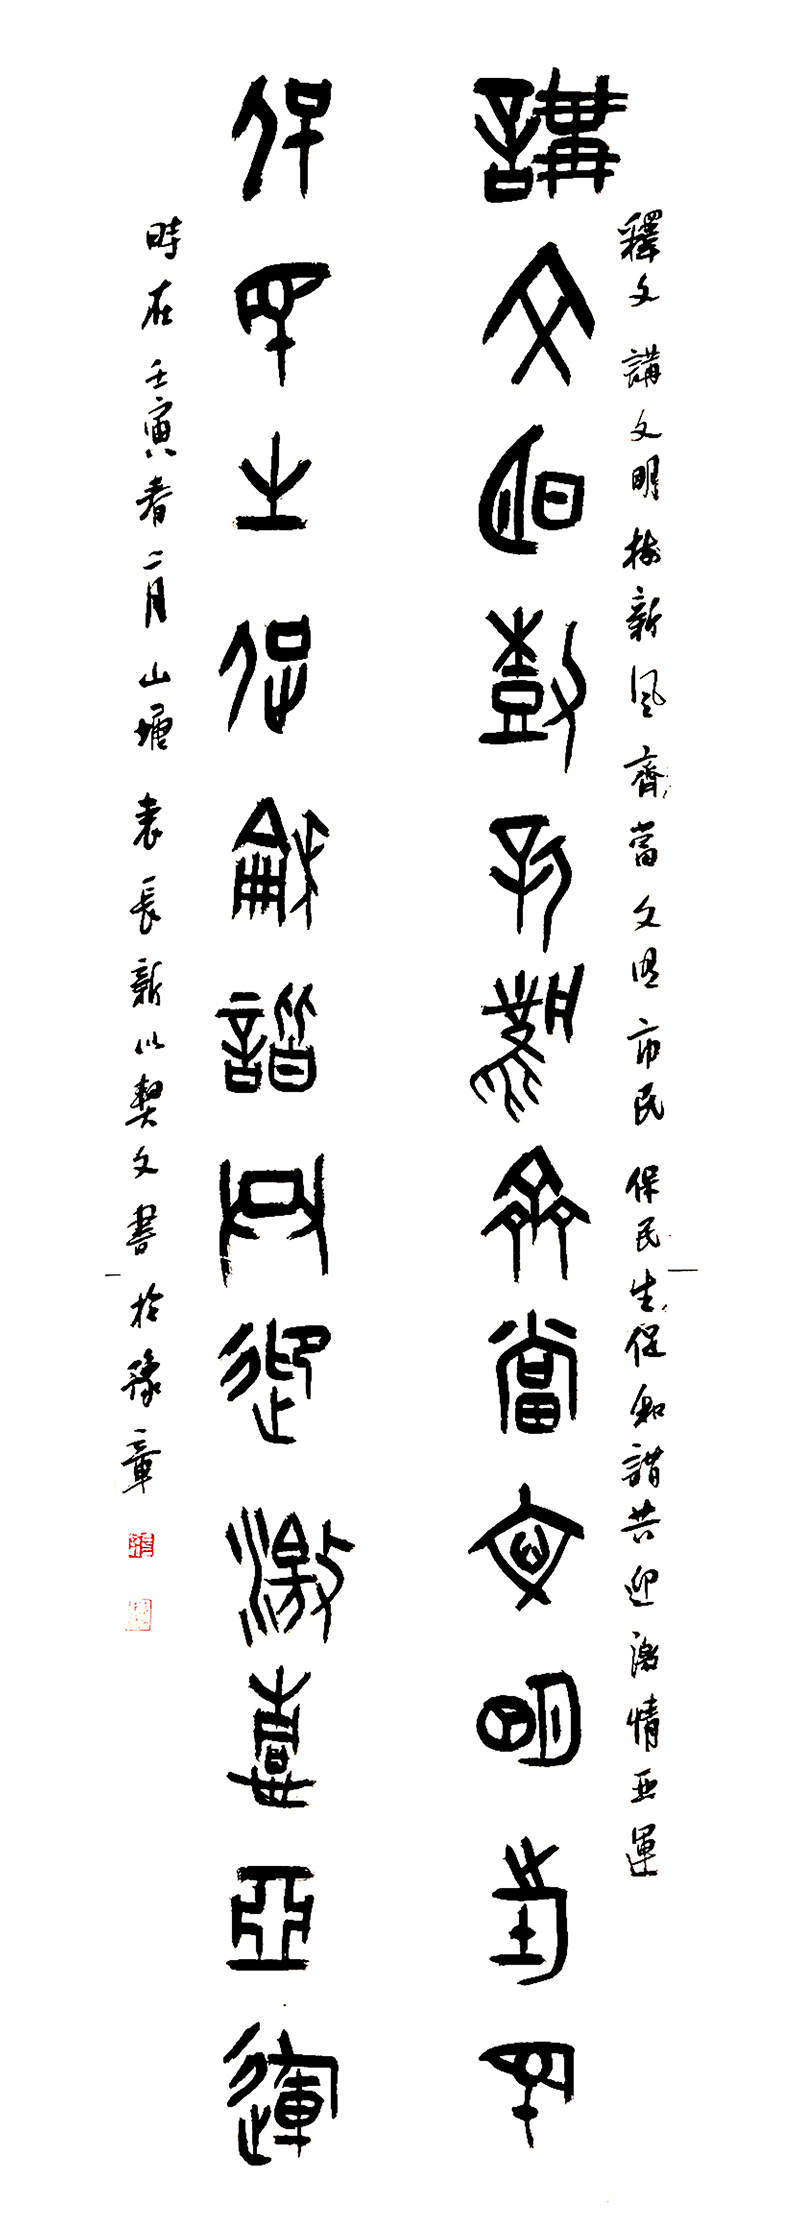 釋文 講文明樹新風齊當文明市民 保民生促和諧共迎激情亞運
講文明樹新風齊當文明市民
保民生促和諧共迎激情亞運
時在壬寅春二月山塘袁長新以契文書於豫章